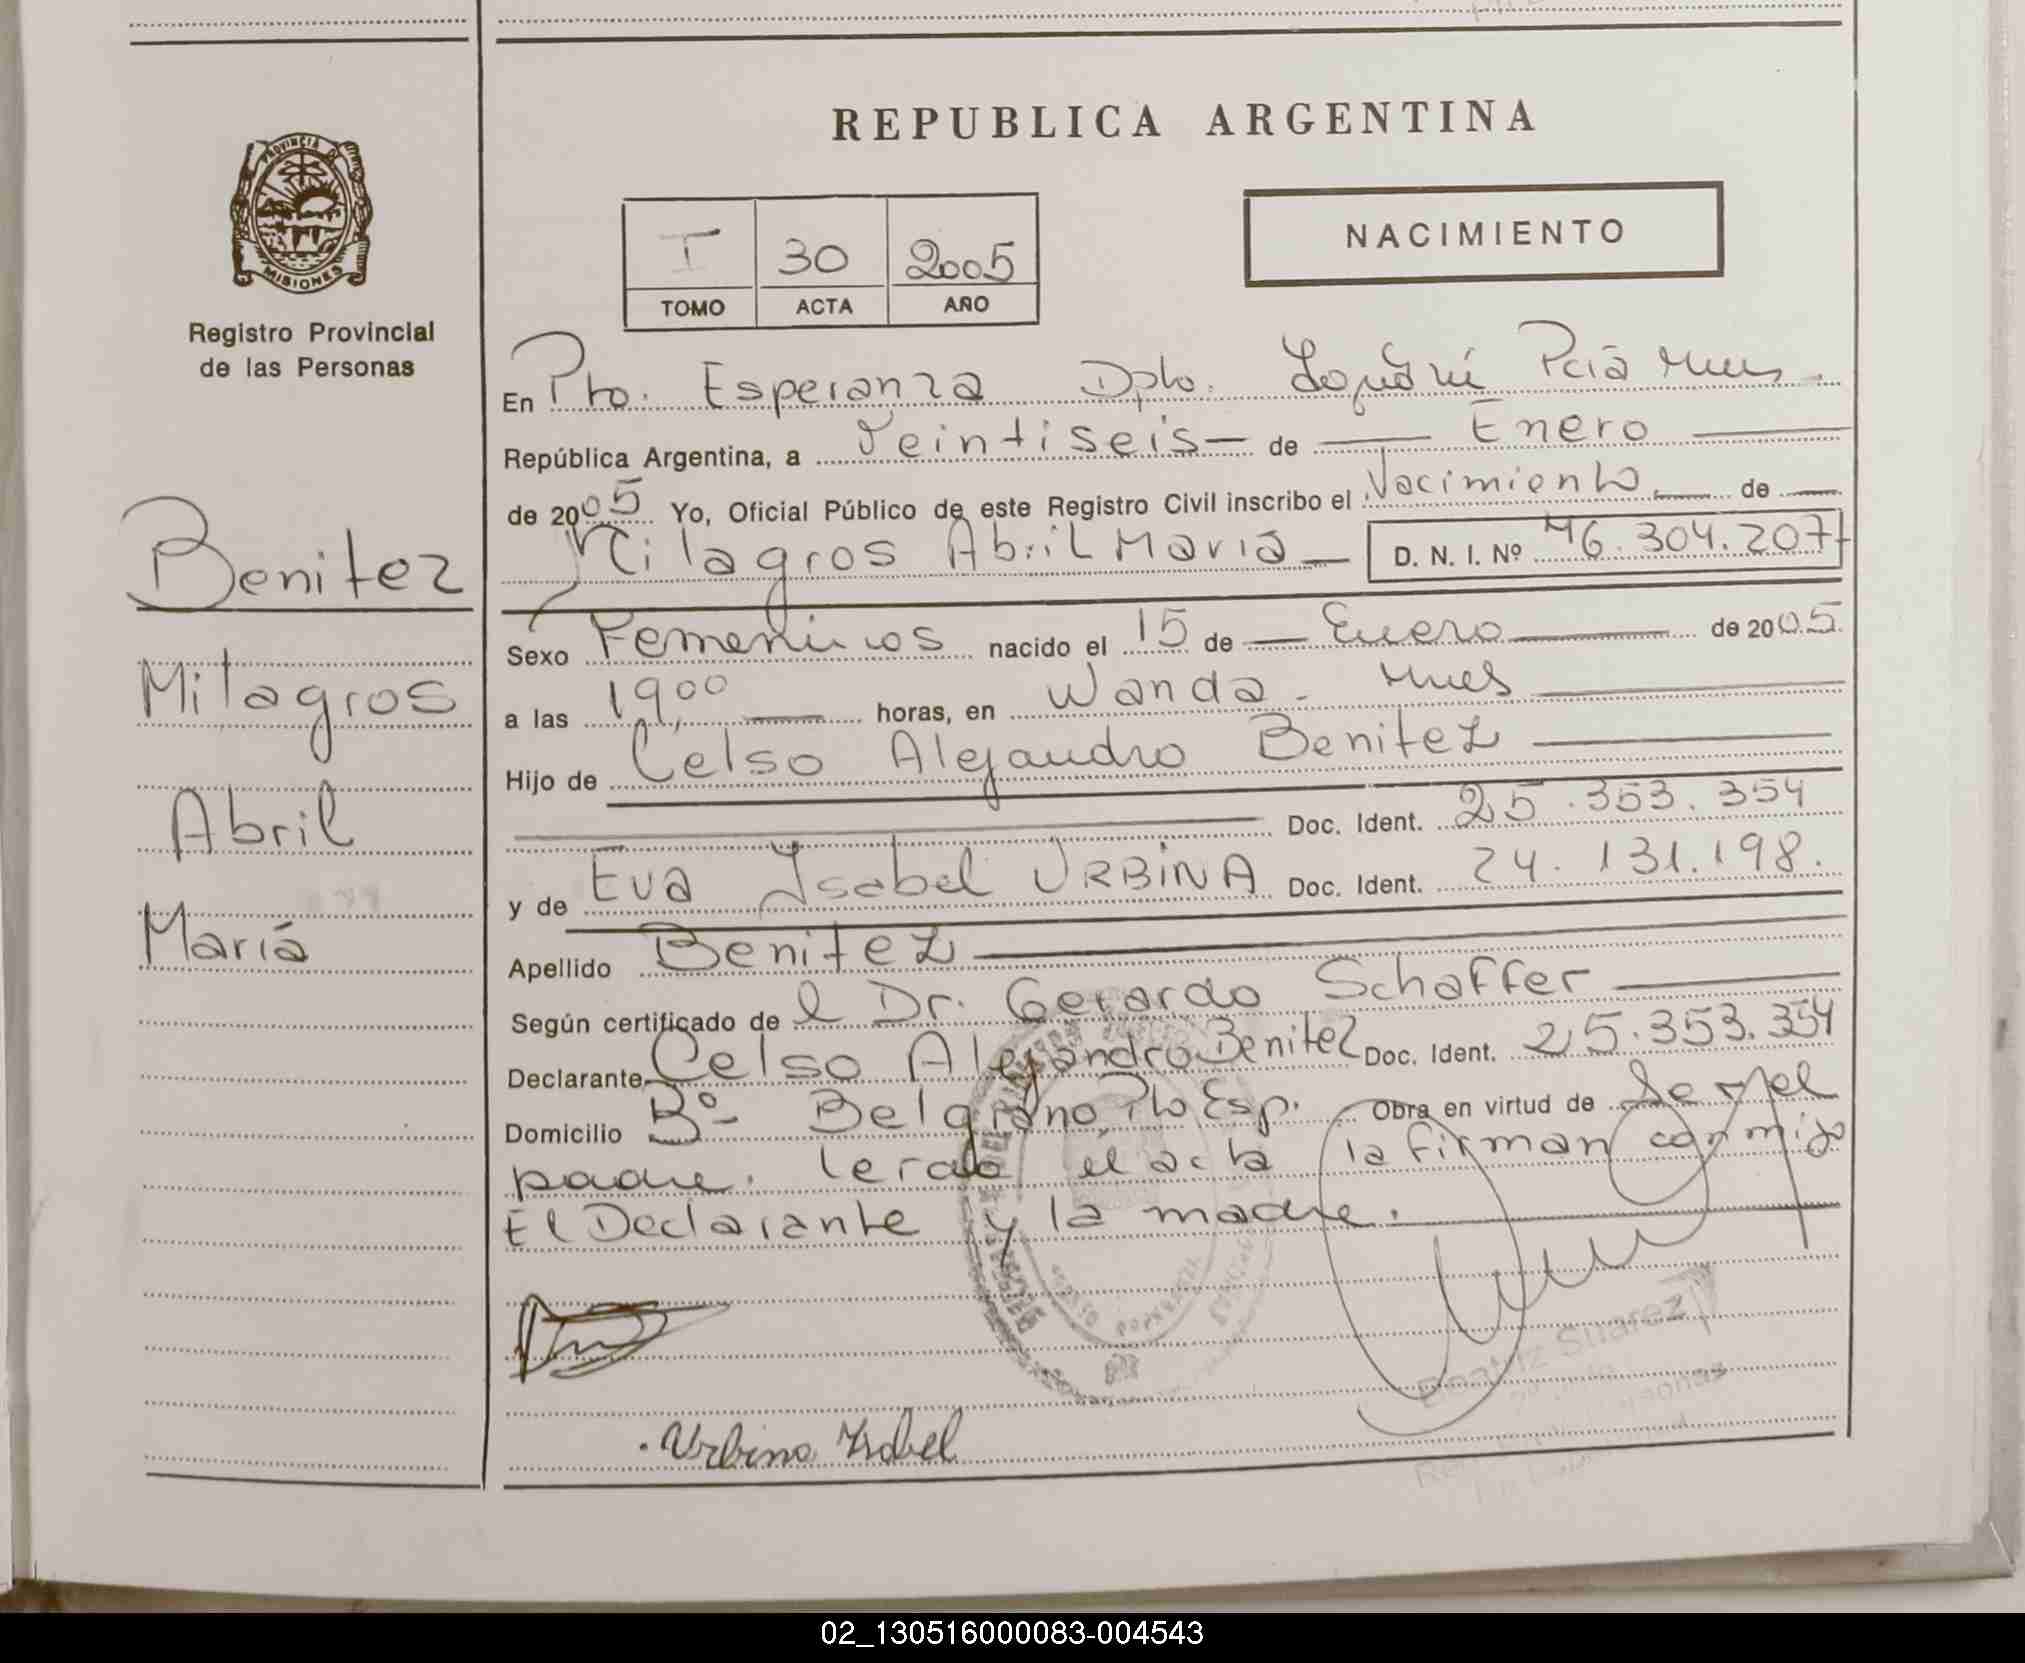 REPUBLICA ARGENTINA
PROVINCIA DE
MISIONES
Registro Provincial
de las Personas
I 30 2005
TOMO ACTA AÑO
NACIMIENTO
En Pto. Esperanza Dpto. Iguazú Pcia Mnes.
República Argentina, a Veintiseis de Enero
de 2005 Yo, Oficial Público de este Registro Civil inscribo el Nacimiento de
Milagros Abril Maria D. N. I. Nº 46.304.207
Benitez
Milagros
Abril
María
Sexo Femenino nacido el 15 de Enero de 2005
a las 19,00 horas, en Wanda - Mnes
Hijo de Celso Alejandro Benitez
Doc. Ident. 25.353.354
y de Eva Isabel URBINA Doc. Ident. 24.131.198.
Apellido Benitez
Según certificado de l Dr. Gerardo Schaffer
Declarante Celso Alejandro Benitez Doc. Ident. 25.353.354
Domicilio Bº- Belgrano Pto Esp. Obra en virtud de Ser el
padre. leida el acta la firman conmigo
El Declarante y la madre.
Urbina Isabel
Beatriz Suarez
02_130516000083-004543